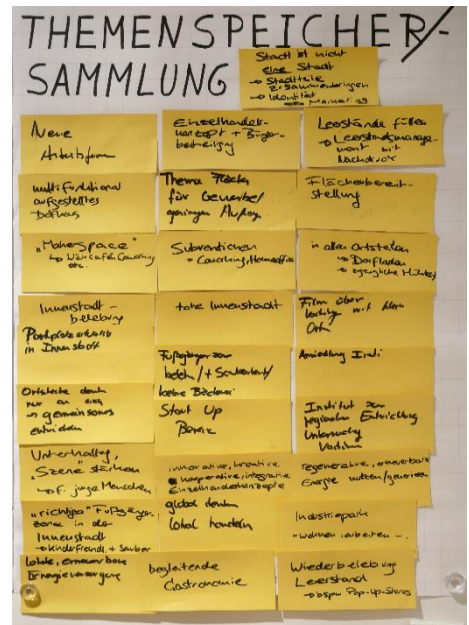 THEMENSPEICHER/-
SAMMLUNG
Stadt ist nicht
eine Stadt
→ Stadtteile
zusammenbringen
→ Identität
Neue
Arbeitsform
Einzelhandels-
konzept + Bürger-
beteiligung
Leerstände füllen
→ Leerstandsmanage-
ment mit
Nachdruck
multifunktional
aufgestelltes
Dorfhaus
Thema Fläche
für Gewerbe/
Flächenbereit-
stellung
"MakerSpace"
etc.
Subventionen
+ Coworking, Homeoffice
in allen Ortsteilen
→ Dorfladen
Innenstadt -
belebung
tote Innenstadt
Film über
mit
Orten
in Innenstadt
Fußgängerzone
+ Sauberkeit/
keine Bäckerei
Ansiedlung
Ortsteile denken
nur an sich
→ gemeinsames
entwickeln
Start Up
Institut zur
regionalen Entwicklung
Unterhaltung,
"Szene" stärken
→ f. junge Menschen
innovative, kreative,
kooperative, integrative
Einzelhandelskonzepte
regenerative, erneuerbare
Energie nutzen/generieren
"richtige" Fußgänger-
zone in der
Innenstadt
→ kinderfreundl. + sauber
global denken
lokal handeln
Industriepark
- wohnen, arbeiten - ..
lokale, erneuerbare
Energieversorgung
begleitende
Gastronomie
Wiederbelebung
Leerstand
→ bspw Pop-Up-Stores